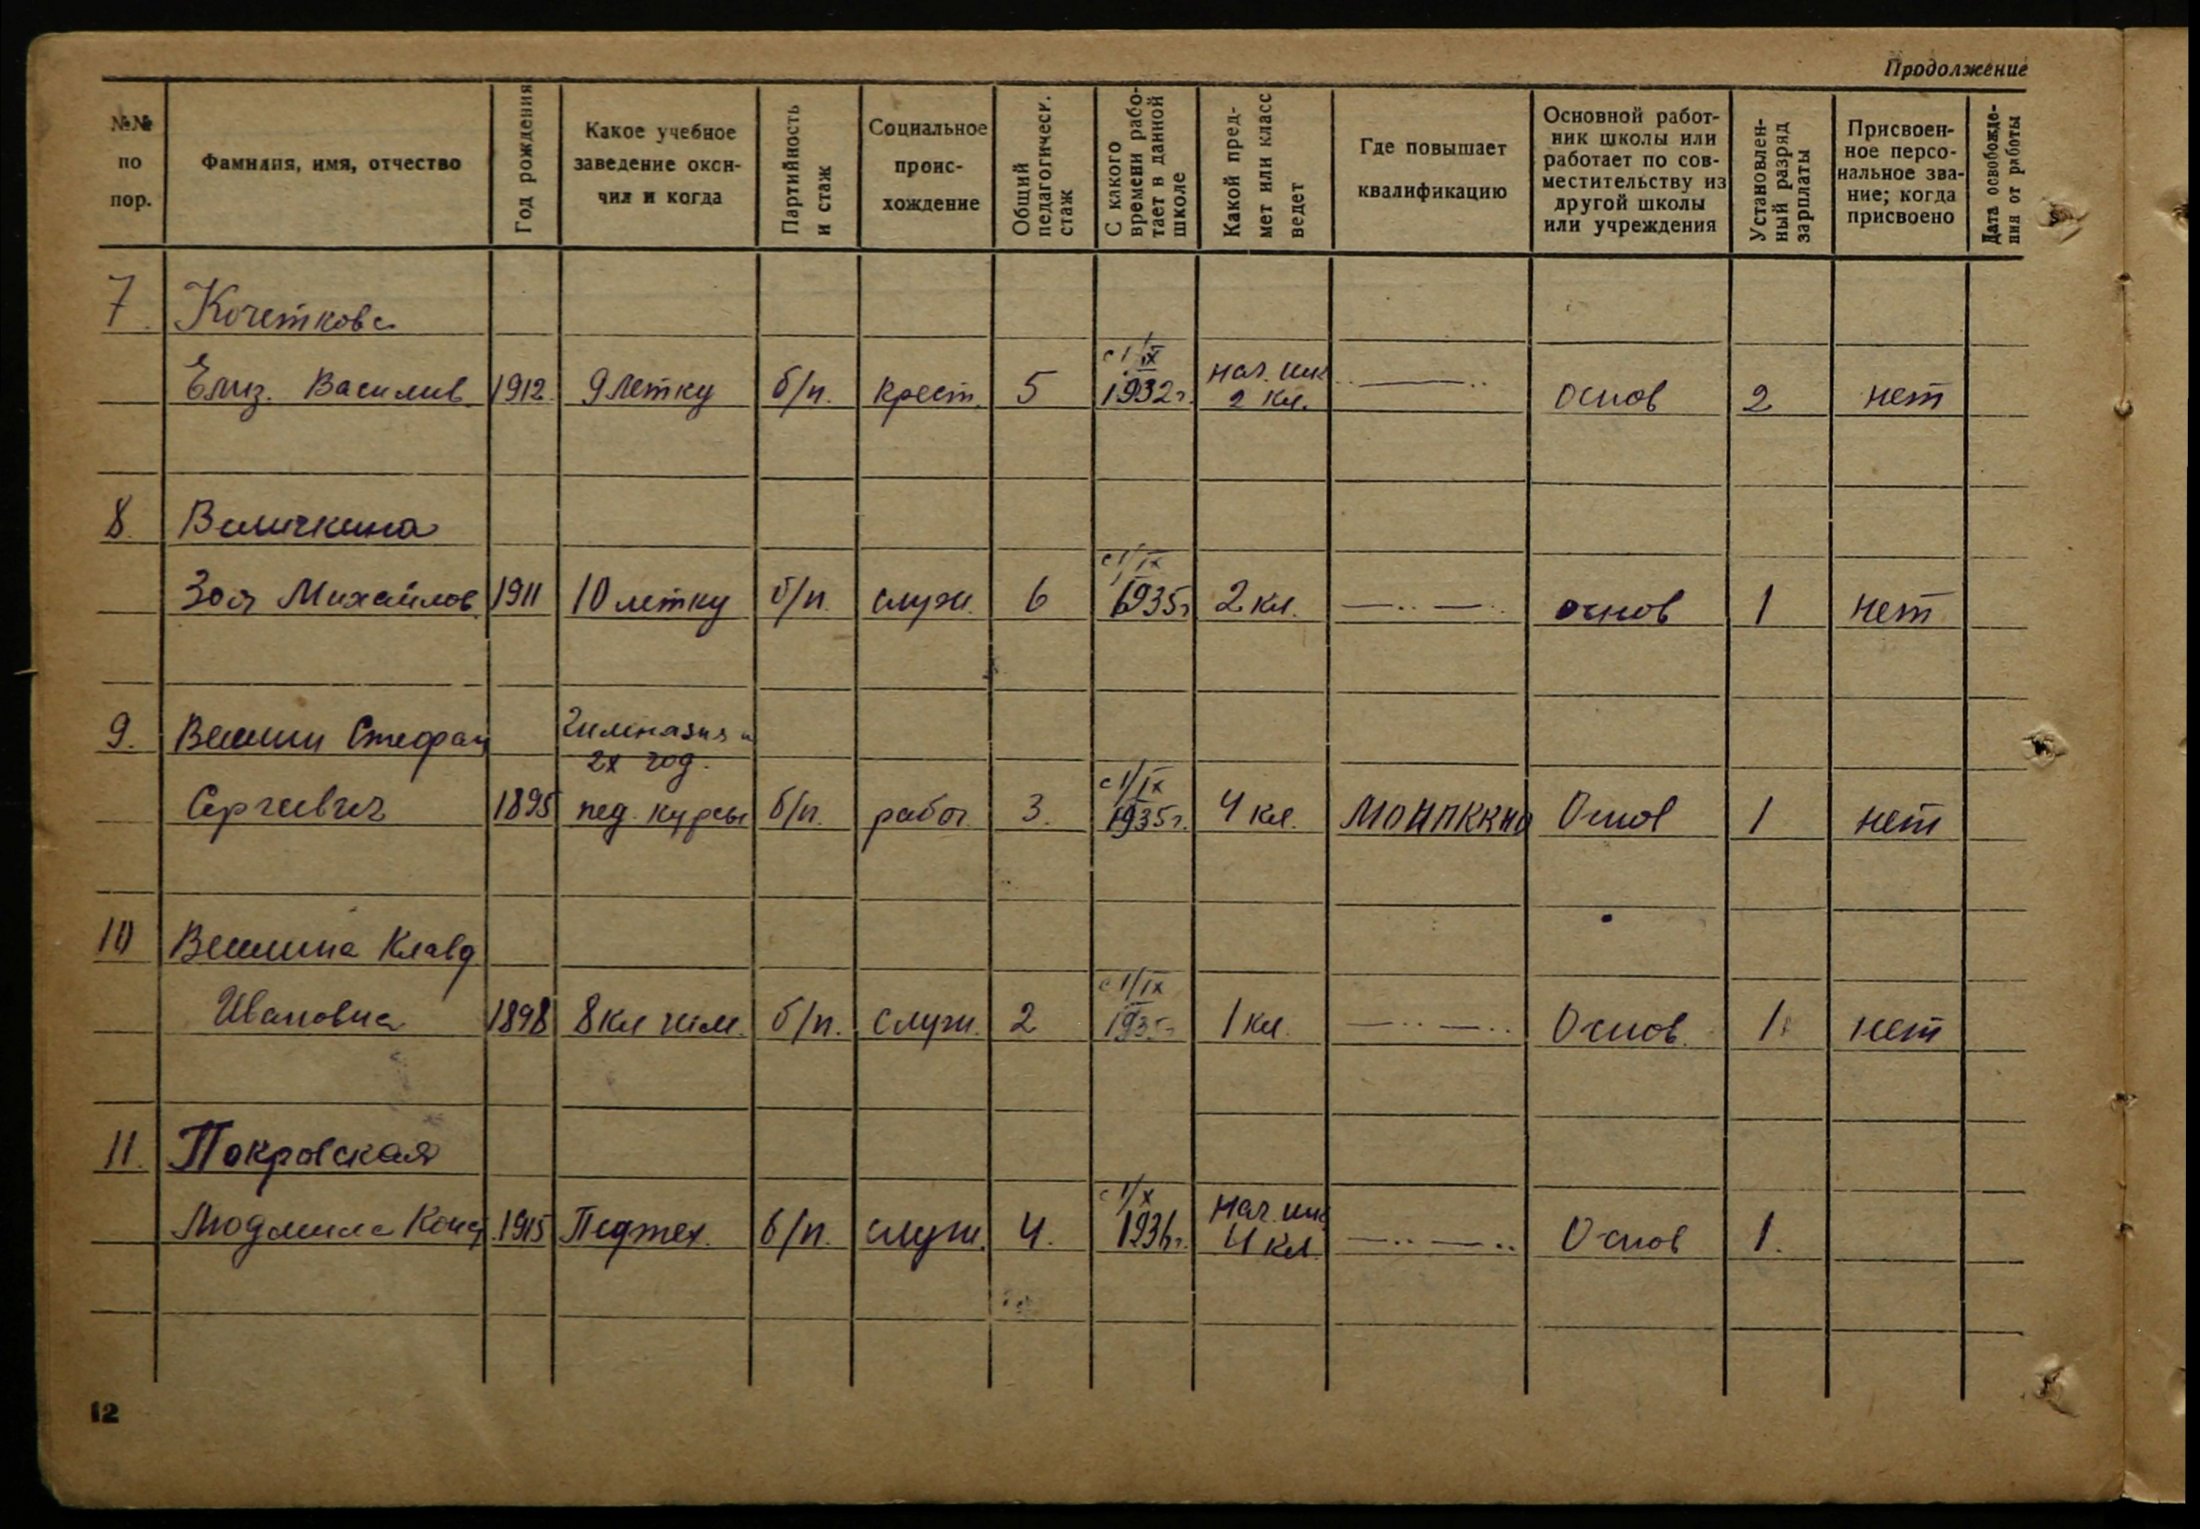 Продолжение
№№ по пор.
Фамилия, имя, отчество
Год рождения
Какое учебное заведение окон-
чил и когда
Партийность и стаж
Социальное проис-
хождение
Общий педагогическ. стаж
С какого времени рабо-
тает в данной школе
Какой пред-
мет или класс ведет
Где повышает квалификацию
Основной работ-
ник школы или
работает по сов-
местительству из
другой школы
или учреждения
Установлен-
ный разряд
зарплаты
Присвоен-
ное персо-
нальное зва-
ние; когда
присвоено
Дата освобожде-
ния от работы
7. Кочеткова
Елиз. Василив 1912. 9 летку б/п. крест. 5 с 1/IX 1932 г. нач. шк 2 кл. основ 2 нет
8. Величкина
Зоя Михайлов. 1911 10 летку б/п. служ. 6 с 1/IX 1935 г 2 кл. основ 1 нет
9. Стефан Гимназия и
2х год.
Сергеевич 1895 пед. курсы б/п. рабоч. 3. с 1/IX 1935 г. 4 кл. Основ 1 нет
10 Клавд
Ивановна 1898 8 кл гим. б/п. служ. 2 с 1/IX 1935 г 1 кл. Основ. 1 нет
11. Покровская
Людмила Конст. 1915 Педтех. б/п. служ. 4. с 1/X 1936 г. нач. шк 4 кл. Основ 1.
12